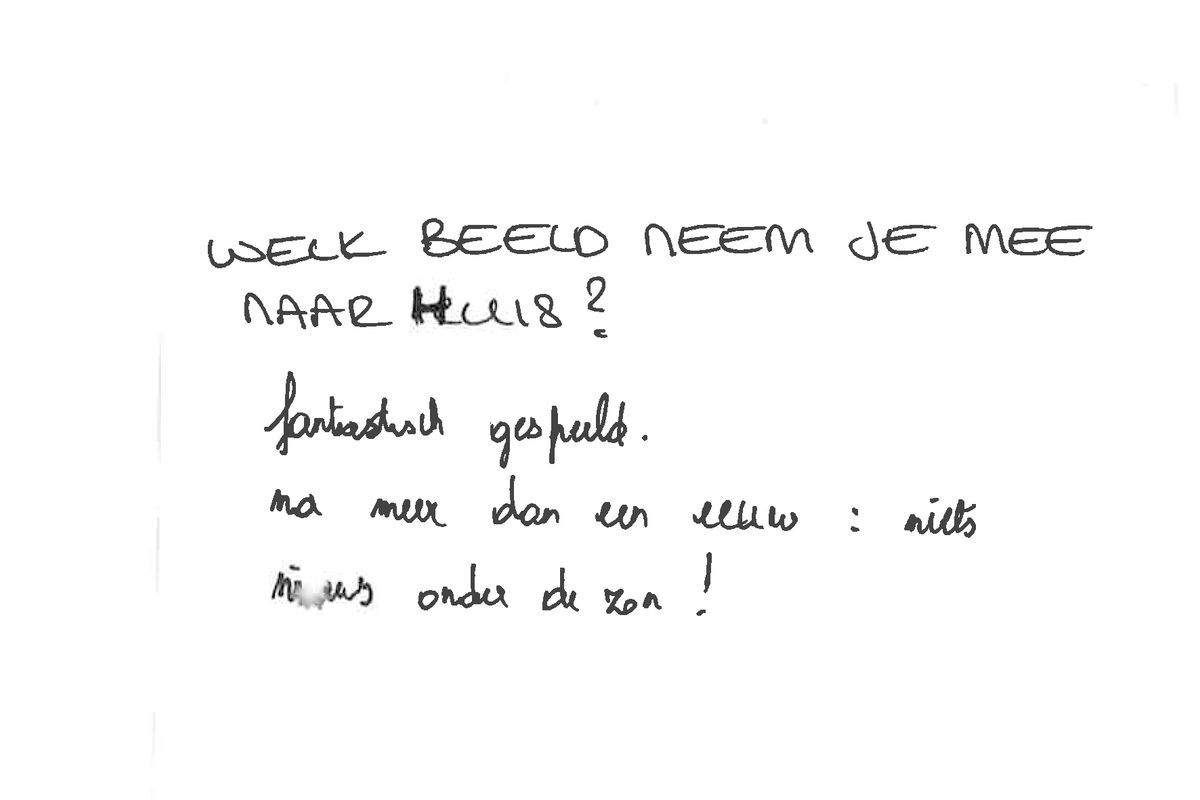 WELK BEELD NEEM JE MEE
NAAR HUIS?
fantastisch gespeeld.
na meer dan een eeuw : niets
nieuws onder de zon !